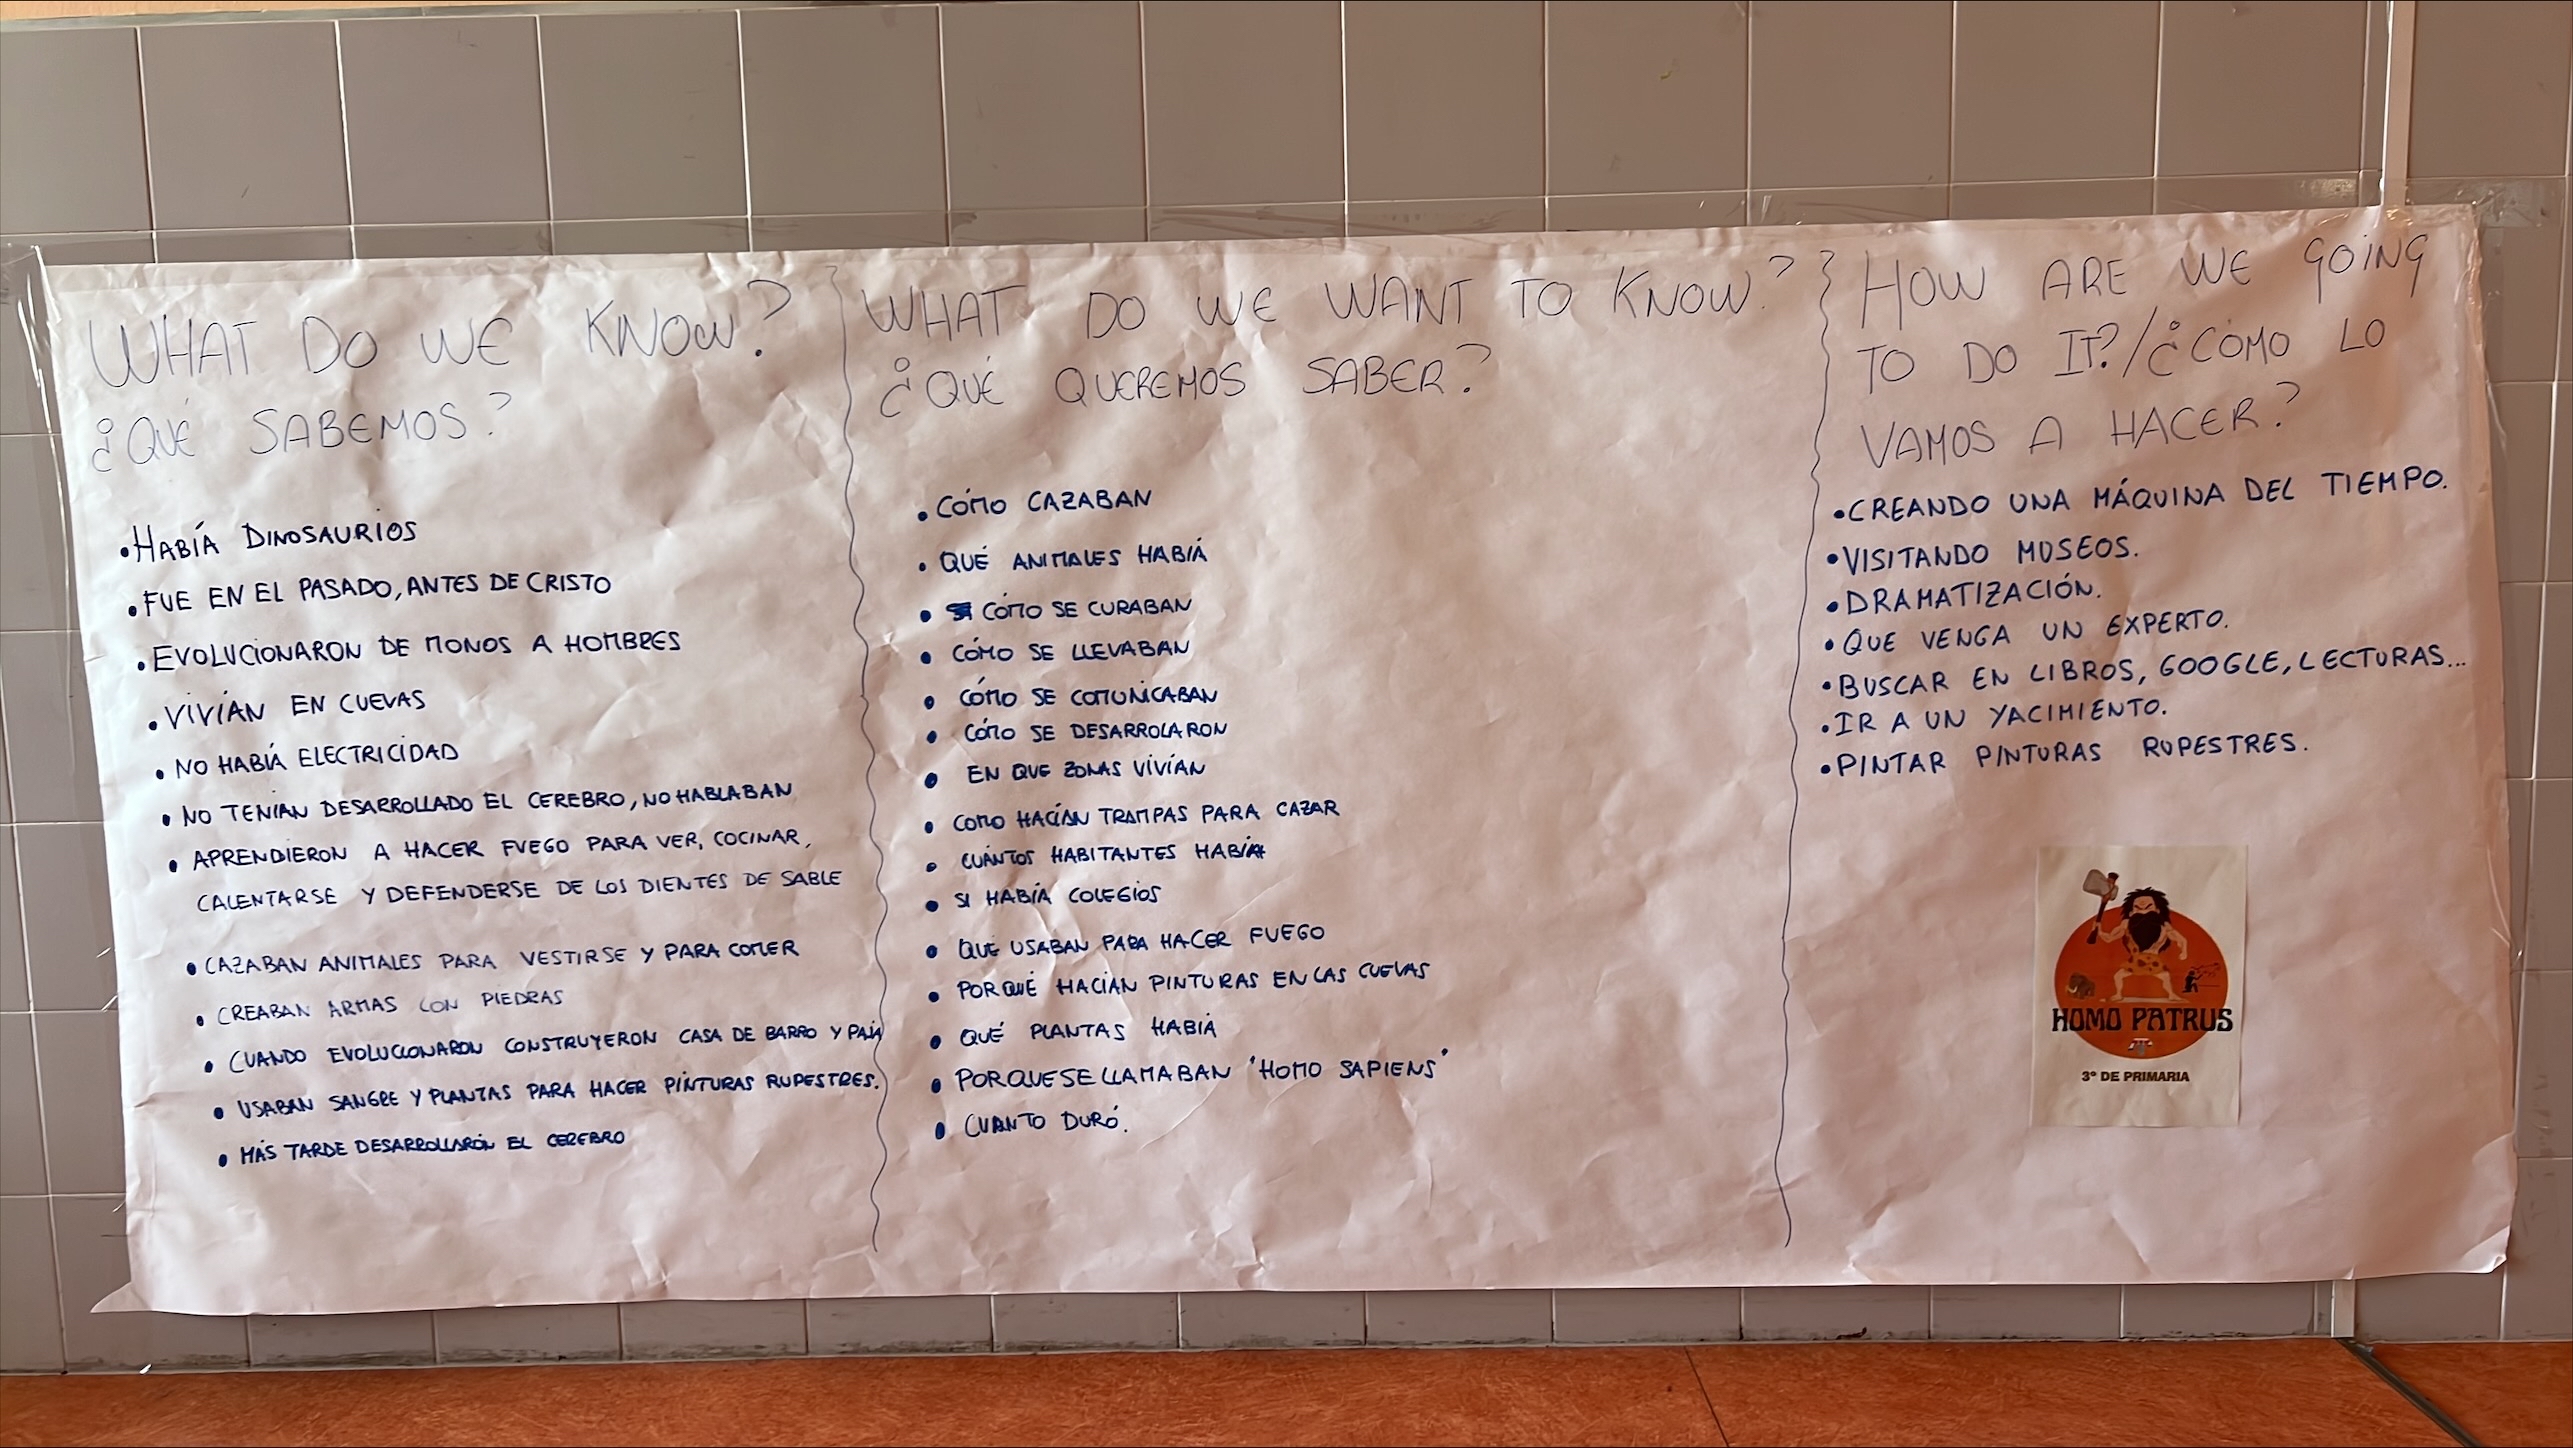 WHAT DO WE KNOW?
¿QUÉ SABEMOS?
• HABÍA DINOSAURIOS
• FUE EN EL PASADO, ANTES DE CRISTO
• EVOLUCIONARON DE MONOS A HOMBRES
• VIVÍAN EN CUEVAS
• NO HABÍA ELECTRICIDAD
• NO TENÍAN DESARROLLADO EL CEREBRO, NO HABLABAN
• APRENDIERON A HACER FUEGO PARA VER, COCINAR,
CALENTARSE Y DEFENDERSE DE LOS DIENTES DE SABLE
• CAZABAN ANIMALES PARA VESTIRSE Y PARA COMER
• CREABAN ARMAS CON PIEDRAS
• CUANDO EVOLUCIONARON CONSTRUYERON CASA DE BARRO Y PAJA
• USABAN SANGRE Y PLANTAS PARA HACER PINTURAS RUPESTRES.
• MÁS TARDE DESARROLLARÓN EL CEREBRO
WHAT DO WE WANT TO KNOW?
¿QUÉ QUEREMOS SABER?
• CÓMO CAZABAN
• QUÉ ANIMALES HABÍA
• CÓMO SE CURABAN
• CÓMO SE LLEVABAN
• CÓMO SE COMUNICABAN
• CÓMO SE DESARROLARON
• EN QUE ZONAS VIVÍAN
• COMO HACÍAN TRAMPAS PARA CAZAR
• CUÁNTOS HABITANTES HABÍA
• SI HABÍA COLEGIOS
• QUÉ USABAN PARA HACER FUEGO
• PORQUÉ HACÍAN PINTURAS EN LAS CUEVAS
• QUÉ PLANTAS HABÍA
• PORQUE SE LLAMABAN "HOMO SAPIENS"
• CUANTO DURÓ.
HOW ARE WE GOING
TO DO IT?/¿CÓMO LO
VAMOS A HACER?
• CREANDO UNA MÁQUINA DEL TIEMPO.
• VISITANDO MUSEOS.
• DRAMATIZACIÓN.
• QUE VENGA UN EXPERTO.
• BUSCAR EN LIBROS, GOOGLE, LECTURAS...
• IR A UN YACIMIENTO.
• PINTAR PINTURAS RUPESTRES.
HOMO PATRUS
3º DE PRIMARIA